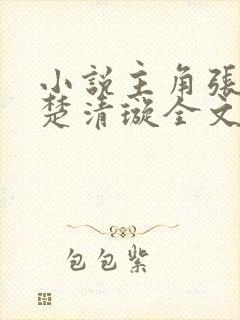 小說主角張
楚清璇全文
包包紫